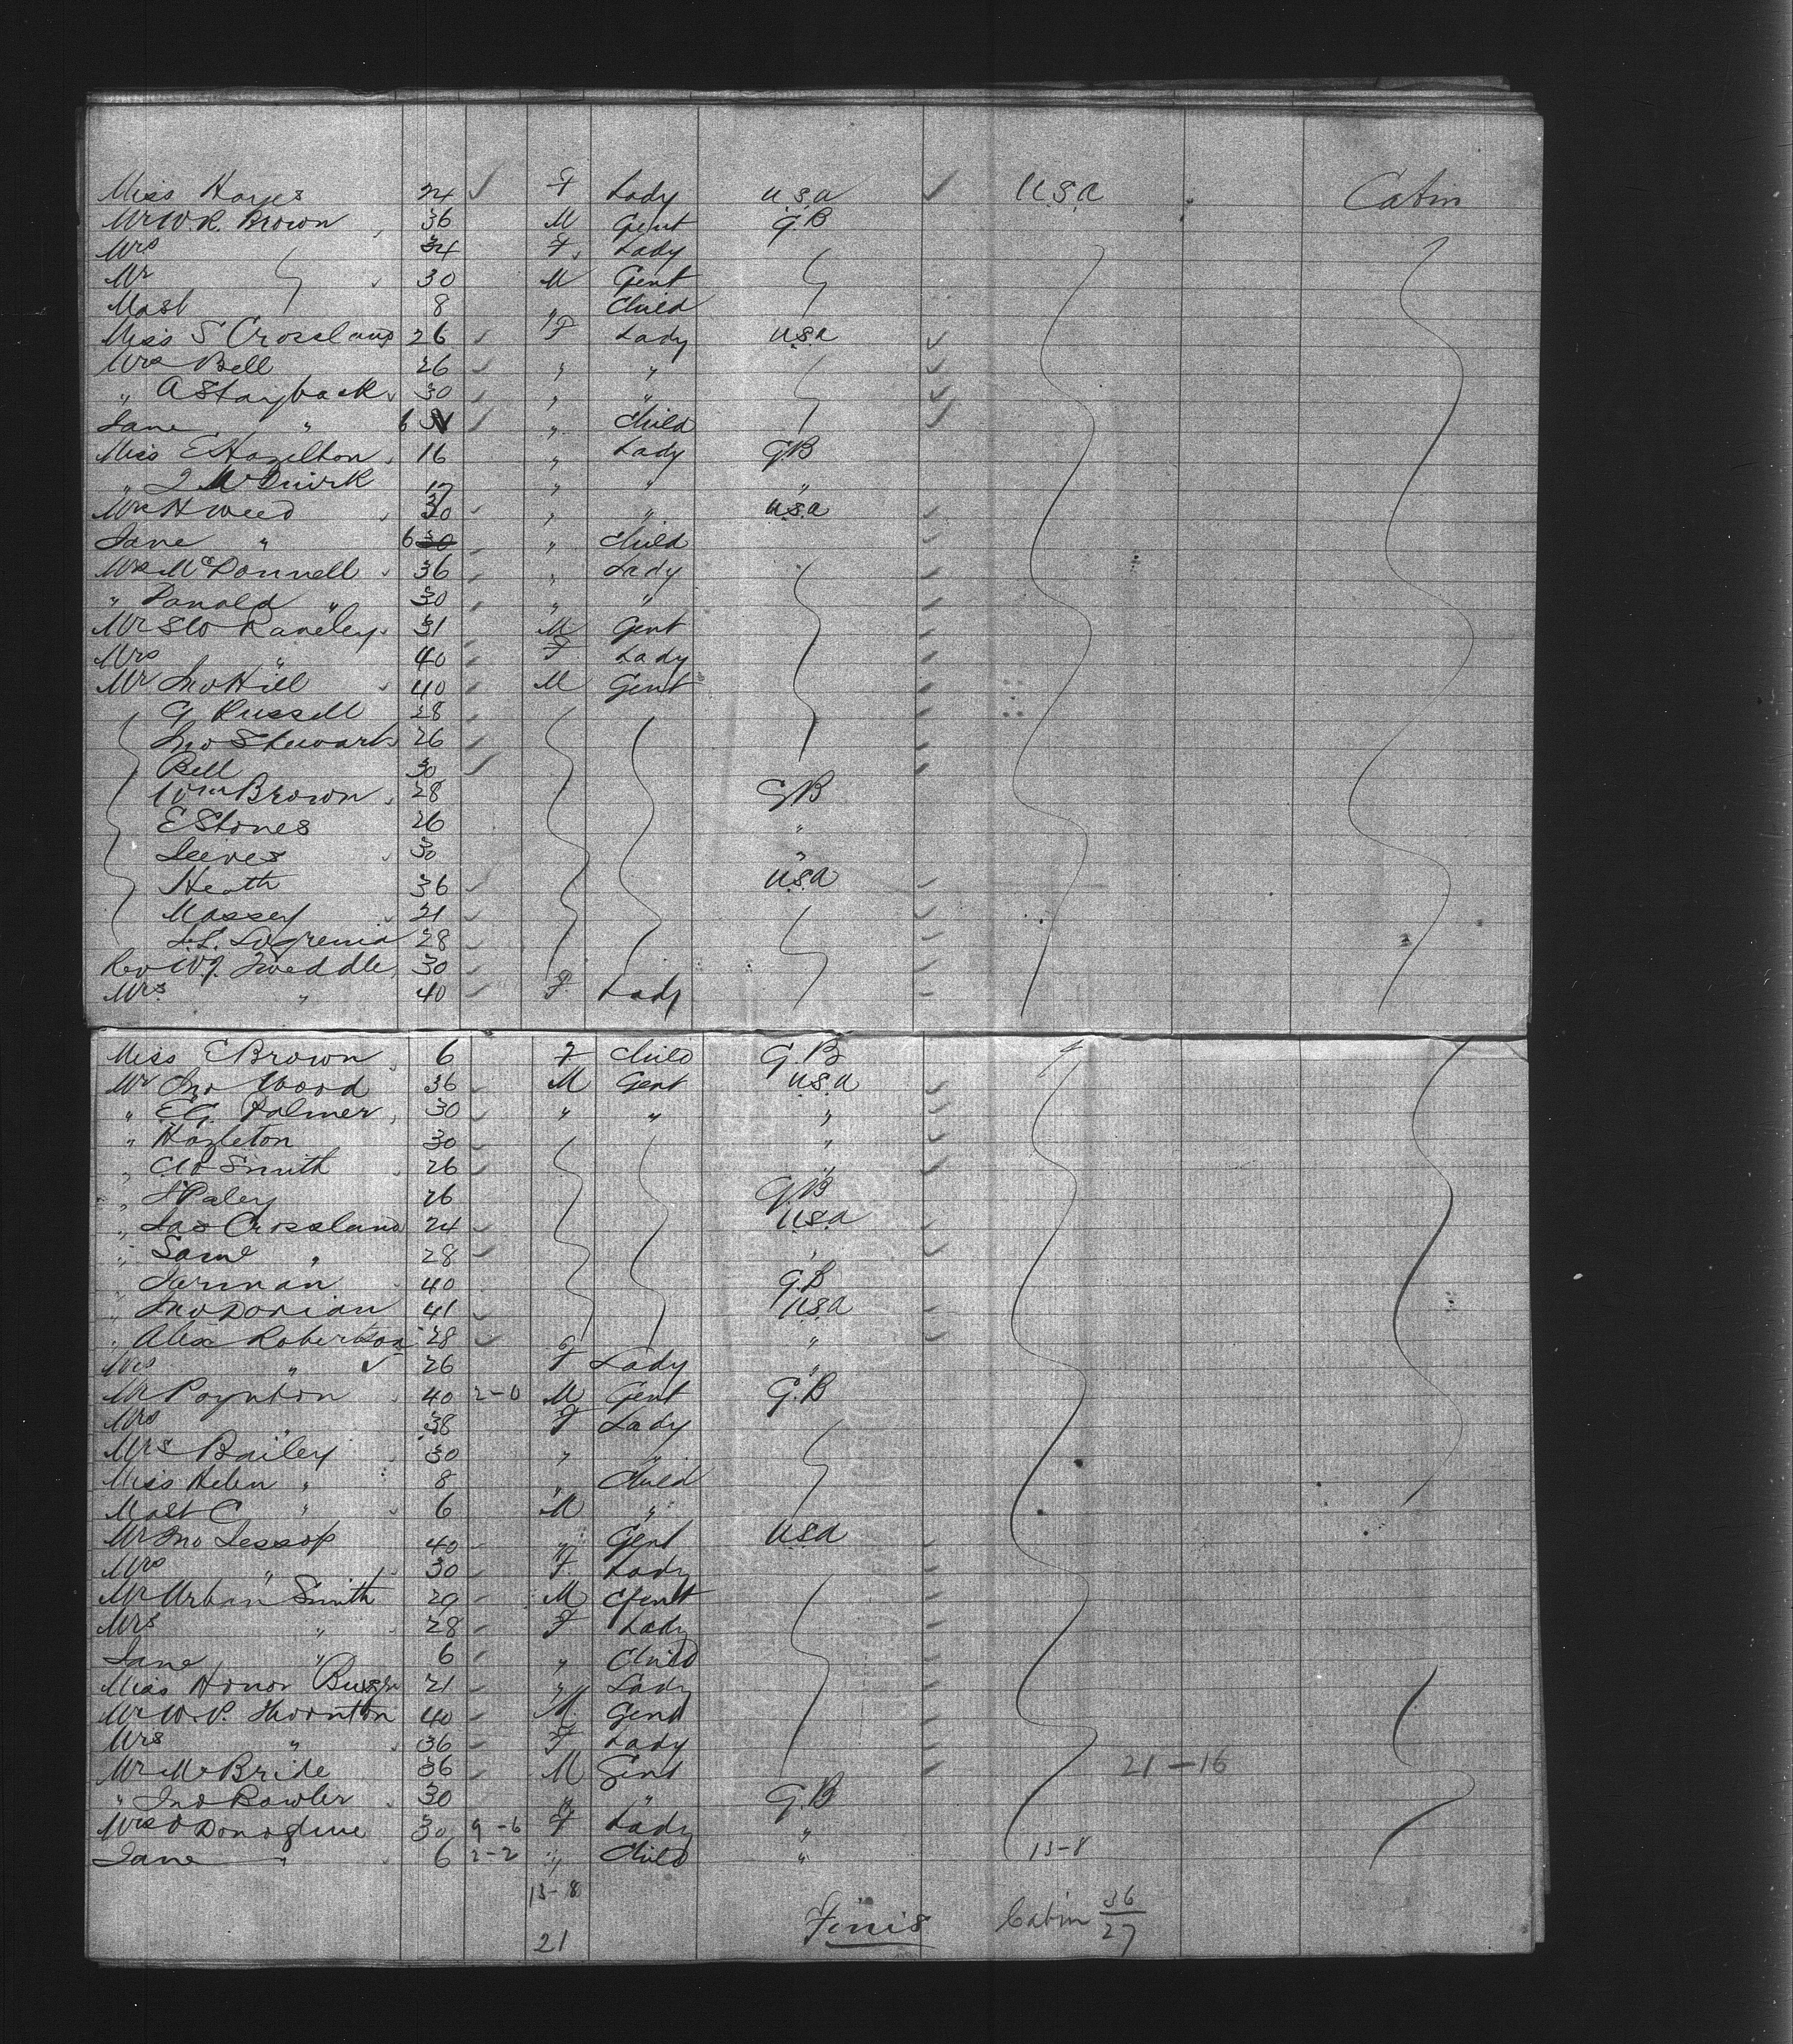 Miss Hayes 24 F Lady U.S.A U.S.A Cabin
Mr W.R. Brown 36 M Gent G.B
Mrs 34 F Lady
Mr 30 M Gent
Mast 8 " Child
Miss S Crossland 26 F Lady U.S.A
Mrs Bell 26 " "
" A Stayback 30 " "
Jane " 6 " Child
Miss E Hazelton 16 " Lady G.B
" 17 " " "
Mrs H Weed 30 " " U.S.A
Jane " 6 30 " Child
Mrs McDonnell 36 " Lady
" Donald " 30 " "
Mr S W Raneley 31 M Gent
Mrs " 40 F Lady
Mr Jno Hill 40 M Gent
G Russell 28
Jno Stewart 26
Bell 30
Wm Brown 28 G.B
E Stones 26 "
Jeeves 30 "
Heath 36 U.S.A
Massey 21
28
Rev W.J. Tweddle 30
Mrs " 40 F Lady
Miss E Brown 6 F Child G.B
Mr Jno Wood 36 M Gent U.S.A
" E.G. Palmer 30 " " "
" Hazleton 30 "
" Smith 26 "
" Paley 26 G.B
" Jas Crossland 24 U.S.A
" Saml " 28 "
" Jarman 40 G.B
" Jno Dorian 41 U.S.A
" Alex Robertson 28 "
Mrs " 26 F Lady "
Mr Poynton 40 2-0 M Gent G.B
Mrs " 38 F Lady
Mrs Bailey 30 " "
Miss Helen " 8 " Child
Mast C " 6 M "
Mr Jno Jessop 40 " Gent U.S.A
Mrs " 30 F Lady
Mr Urban Smith 29 M Gent
Mrs " 28 F Lady
Jane " 6 " Child
Miss Honor 21 " Lady
Mr W.P. Thornton 40 M Gent
Mrs " 36 F Lady
Mr McBride 36 M Gent 21-16
" Jno Bowler 30 " " G.B
Mrs O Donoghue 30 9-6 F Lady "
Jane " 6 2-2 " Child " 13-8
13-8
Finis Cabin 36
21 27